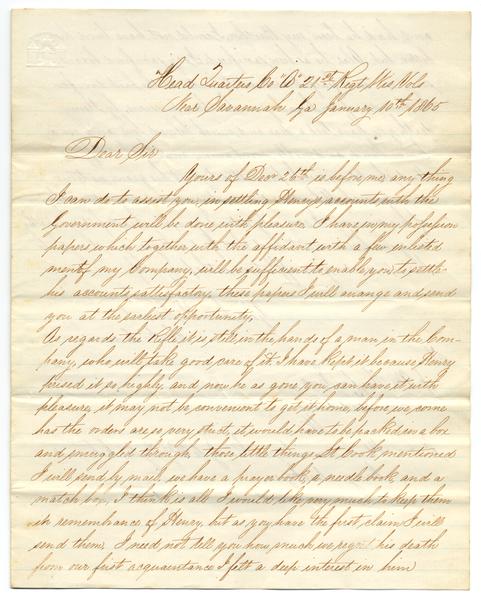 Head Quarters Co "A" 21st Regt Wis Vols
Near Savannah Ga January 10th 1865
Dear Sir
Yours of Decr 26th is before me any thing
I can do to assist you, in settling Henrys accounts with the
Government will be done with pleasure. I have in my possession
papers which together with the affidavit with a few enlisted
men of my Company, will be sufficient to enable you to settle
his accounts satisfactory, these papers I will arrange and send
you at the earliest opportunity.
As regards the Rifle it is still in the hands of a man in the Com-
pany, who will take good care of it I have kept it because Henry
prised it so highly, and now he as gone you can have it with
pleasure, it may not be convenient to get it home before we come
has the orders are so very strict, it would have to be packed in a box
and smuggled through. those little things Lt Cook mentioned
I will send by mail, we have a prayer book, a needle book and a
match box, I think is all I would like very much to keep them
in remembrance of Henry, but as you have the first claim I will
send them. I need not tell you how much we regret his death
from our first acquaintance I felt a deep interest in him